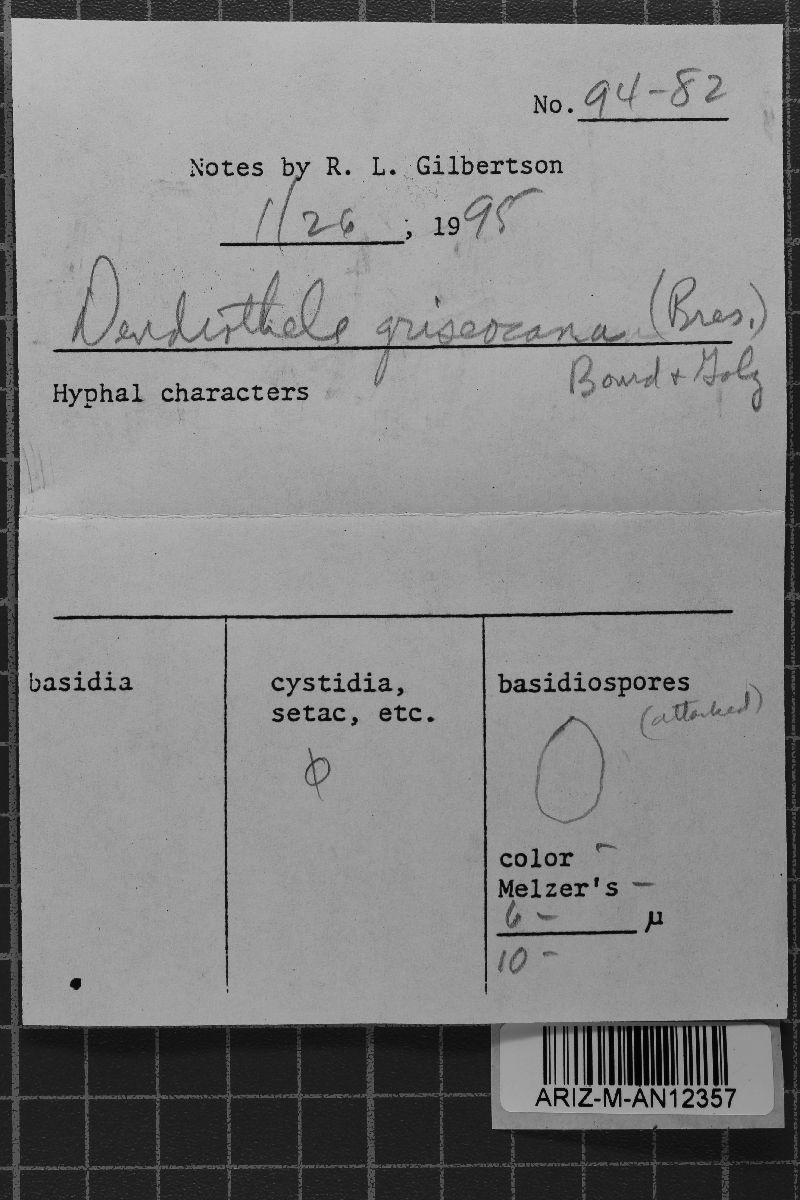 No. 94-82
Notes by R. L. Gilbertson
1/26, 1995
Dendrothele griseocana (Bres.)
Bourd + Galz
Hyphal characters
basidia
cystidia,
setac, etc.
φ
basidiospores
(attached)
color -
Melzer's -
6 - μ
10 -
ARIZ-M-AN12357